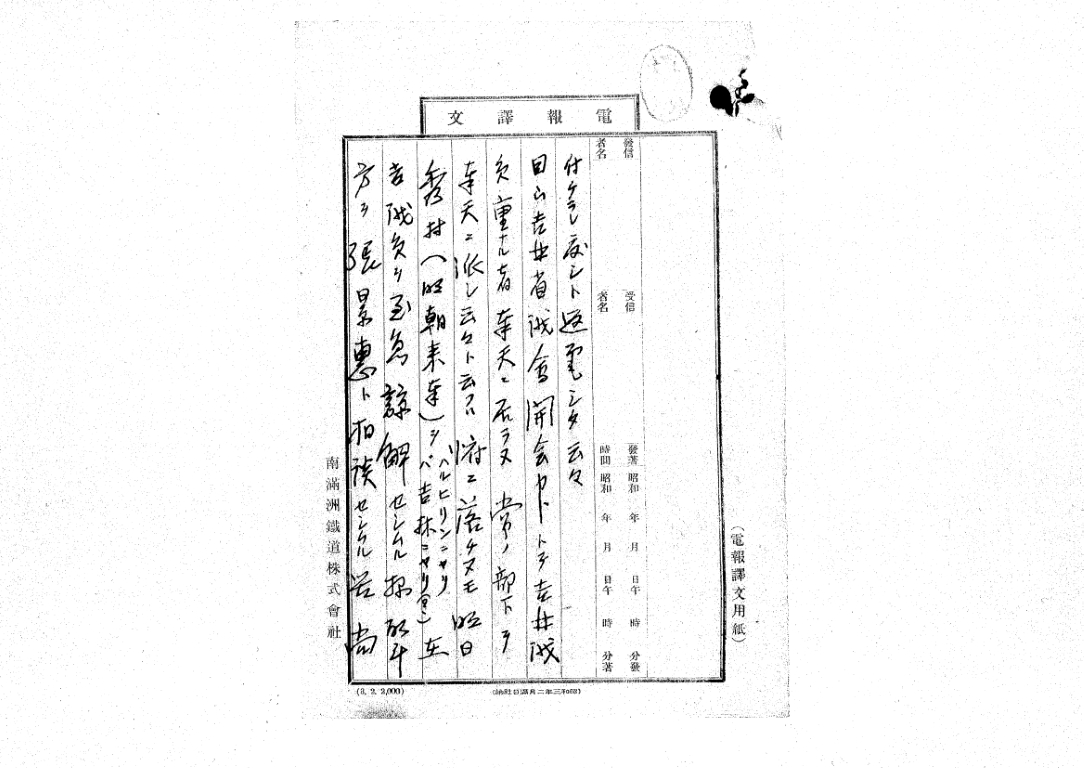 電報譯文
發信者名
受信者名
發著時間 昭和 年 月 日午 時 分發
昭和 年 月 日午 時 分著
付ケラレ度シト返電シタ云々
目下吉林省議會開会中トテ吉林議
員重ナル者奉天ニ居ラヌ 常ノ部下ヲ
奉天ニ派シ云々ト云フハ ニ落チヌモ明日
秀村(明朝来奉)ヲ
ハルビリンニヤリ
吉林ニヤリ
在
吉議員ヲ至急諒解セシムル様
方ヲ張景惠ト相談セシムル 尚
南滿洲鐵道株式會社
(電報譯文用紙)
(3. 2. 2,000)